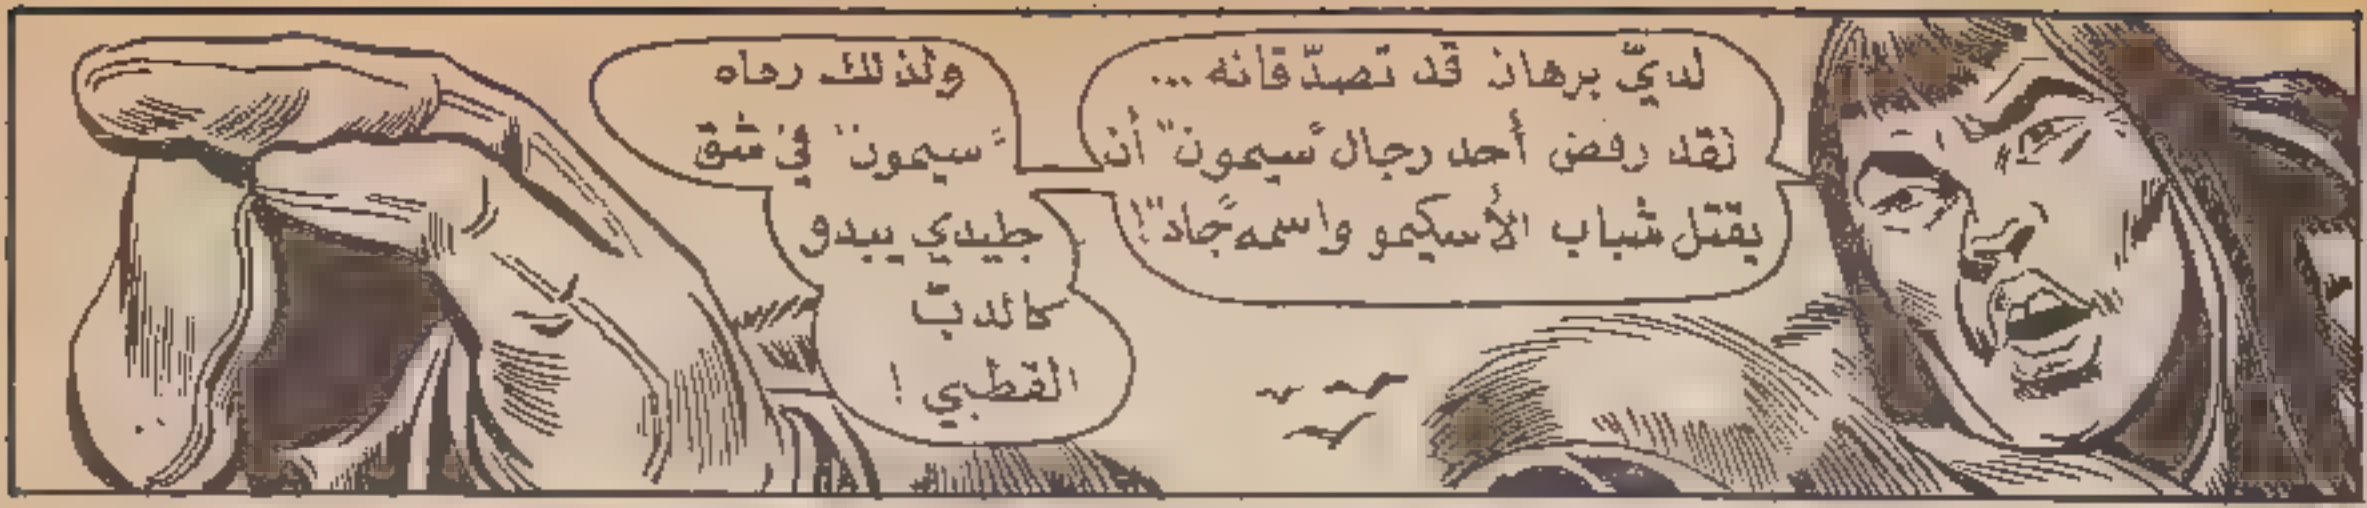 لديّ برهان قد تصدّقانه ...
لقد رفض أحد رجال "سيمون" أن
يقتل شباب الأسكيمو واسمه "جاد"!
ولذلك رماه
"سيمون" في شق
جليدي يبدو
كالدبّ
القطبي !